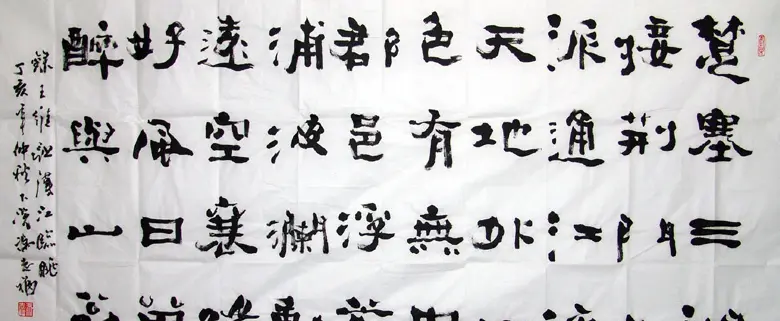 楚塞三
接荆门
派通江
天地外
色有無
郡邑浮
浦波瀾
遠空襄
好風日
醉與山
錄王維詩漢江臨眺
丁亥年仲秋